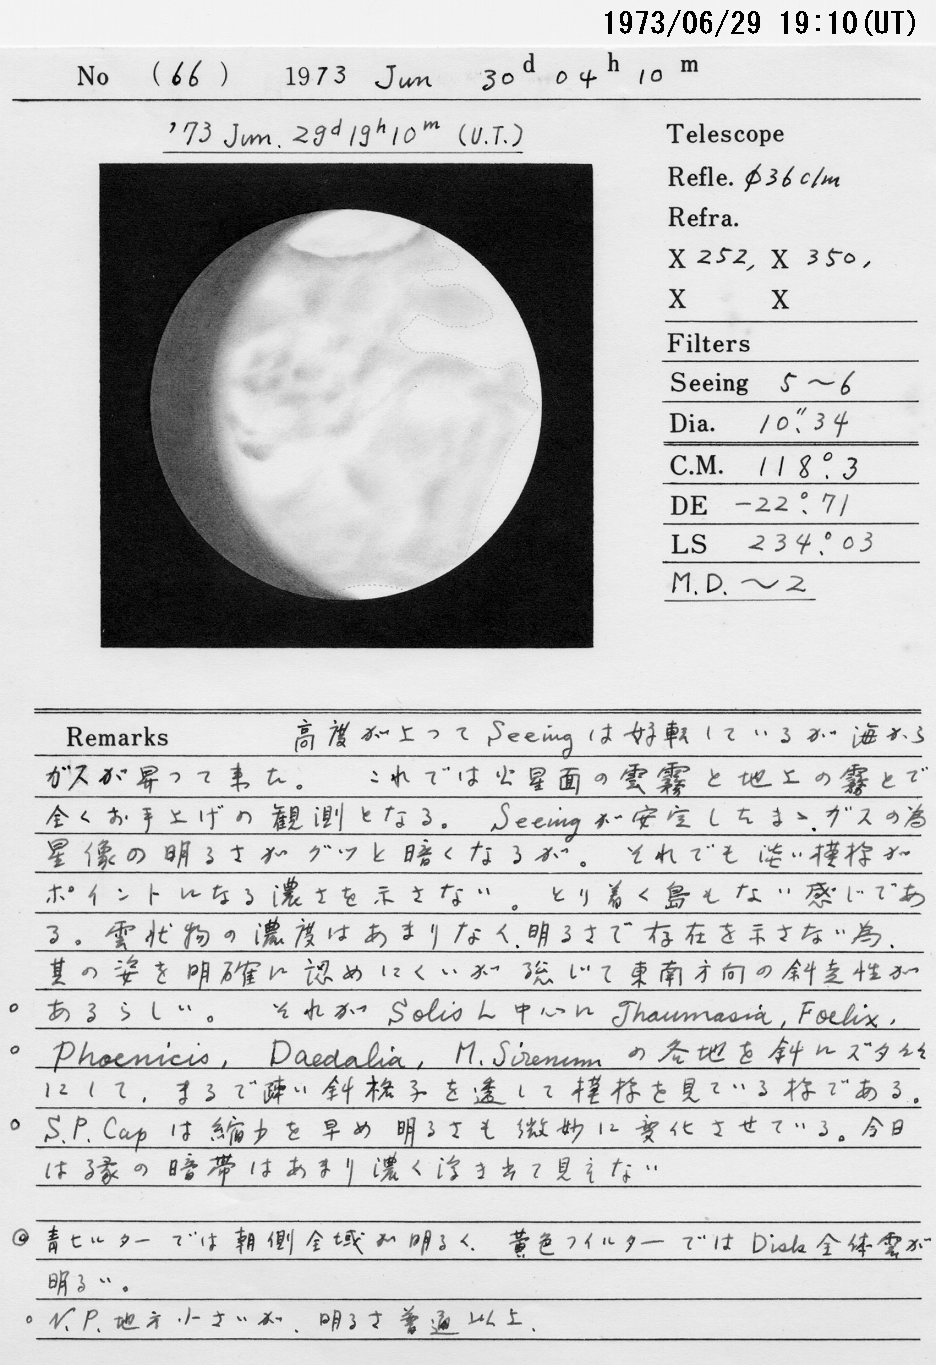 1973/06/29 19:10(UT)
No (66) 1973 Jun 30d 04h 10m
'73 Jun. 29d 19h 10m (U.T.)
Telescope
Refle. φ36c/m
Refra.
X 252, X 350,
X X
Filters
Seeing 5～6
Dia. 10".34
C.M. 118°.3
DE -22°.71
LS 234°.03
M.D. ～2
Remarks 高度が上って Seeingは好転しているが海から
ガスが昇って来た。 これでは火星面の雲霧と地上の霧とで
全くお手上げの観測となる。 Seeingが安定したまゝ、ガスの為
星像の明るさがグッと暗くなるが。 それでも淡い模様が
ポイントになる濃さを示さない。 とり着く島もない感じであ
る。雲状物の濃度はあまりなく、明るさで存在を示さない為、
其の姿を明確に認めにくいが 総じて東南方向の斜走性が
○ あるらしい。 それが Solis L 中心に Thaumasia, Foelix,
○ Phoenicis, Daedalia, M. Sirenum の各地を斜にズタズタ
にして、まるで 斜格子を透して模様を見ている様である。
○ S.P. Cap は縮力を早め 明るさも微妙に変化させている。今日
は縁の暗帯はあまり濃く浮き出て見えない
◎ 青ヒルターでは朝側全域が明るく、黄色フィルターでは Disk 全体雲が
明るい。
○ N.P.地方小さいが、明るさ普通以上.